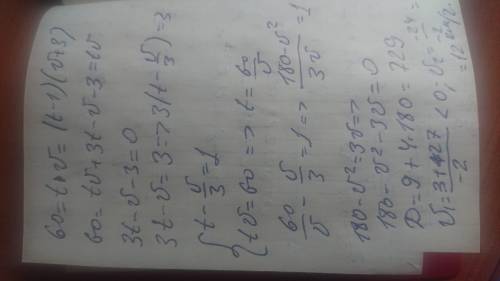 60 = t·v = (t-1)(v+3)
60 = tv + 3t - v - 3 = tv
3t - v - 3 = 0
3t - v = 3 => 3(t - v/3) = 3
{ t - v/3 = 1
tv = 60 => t = 60/v
60/v - v/3 = 1 => (180 - v²)/3v = 1
180 - v² = 3v =>
180 - v² - 3v = 0
D = 9 + 4·180 = 729
v₁ = (3+27)/-2 < 0; v₂ = -24/-2 =
= 12